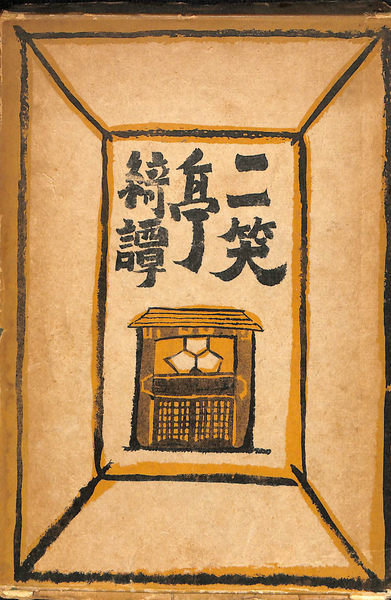 二笑
亭
綺譚